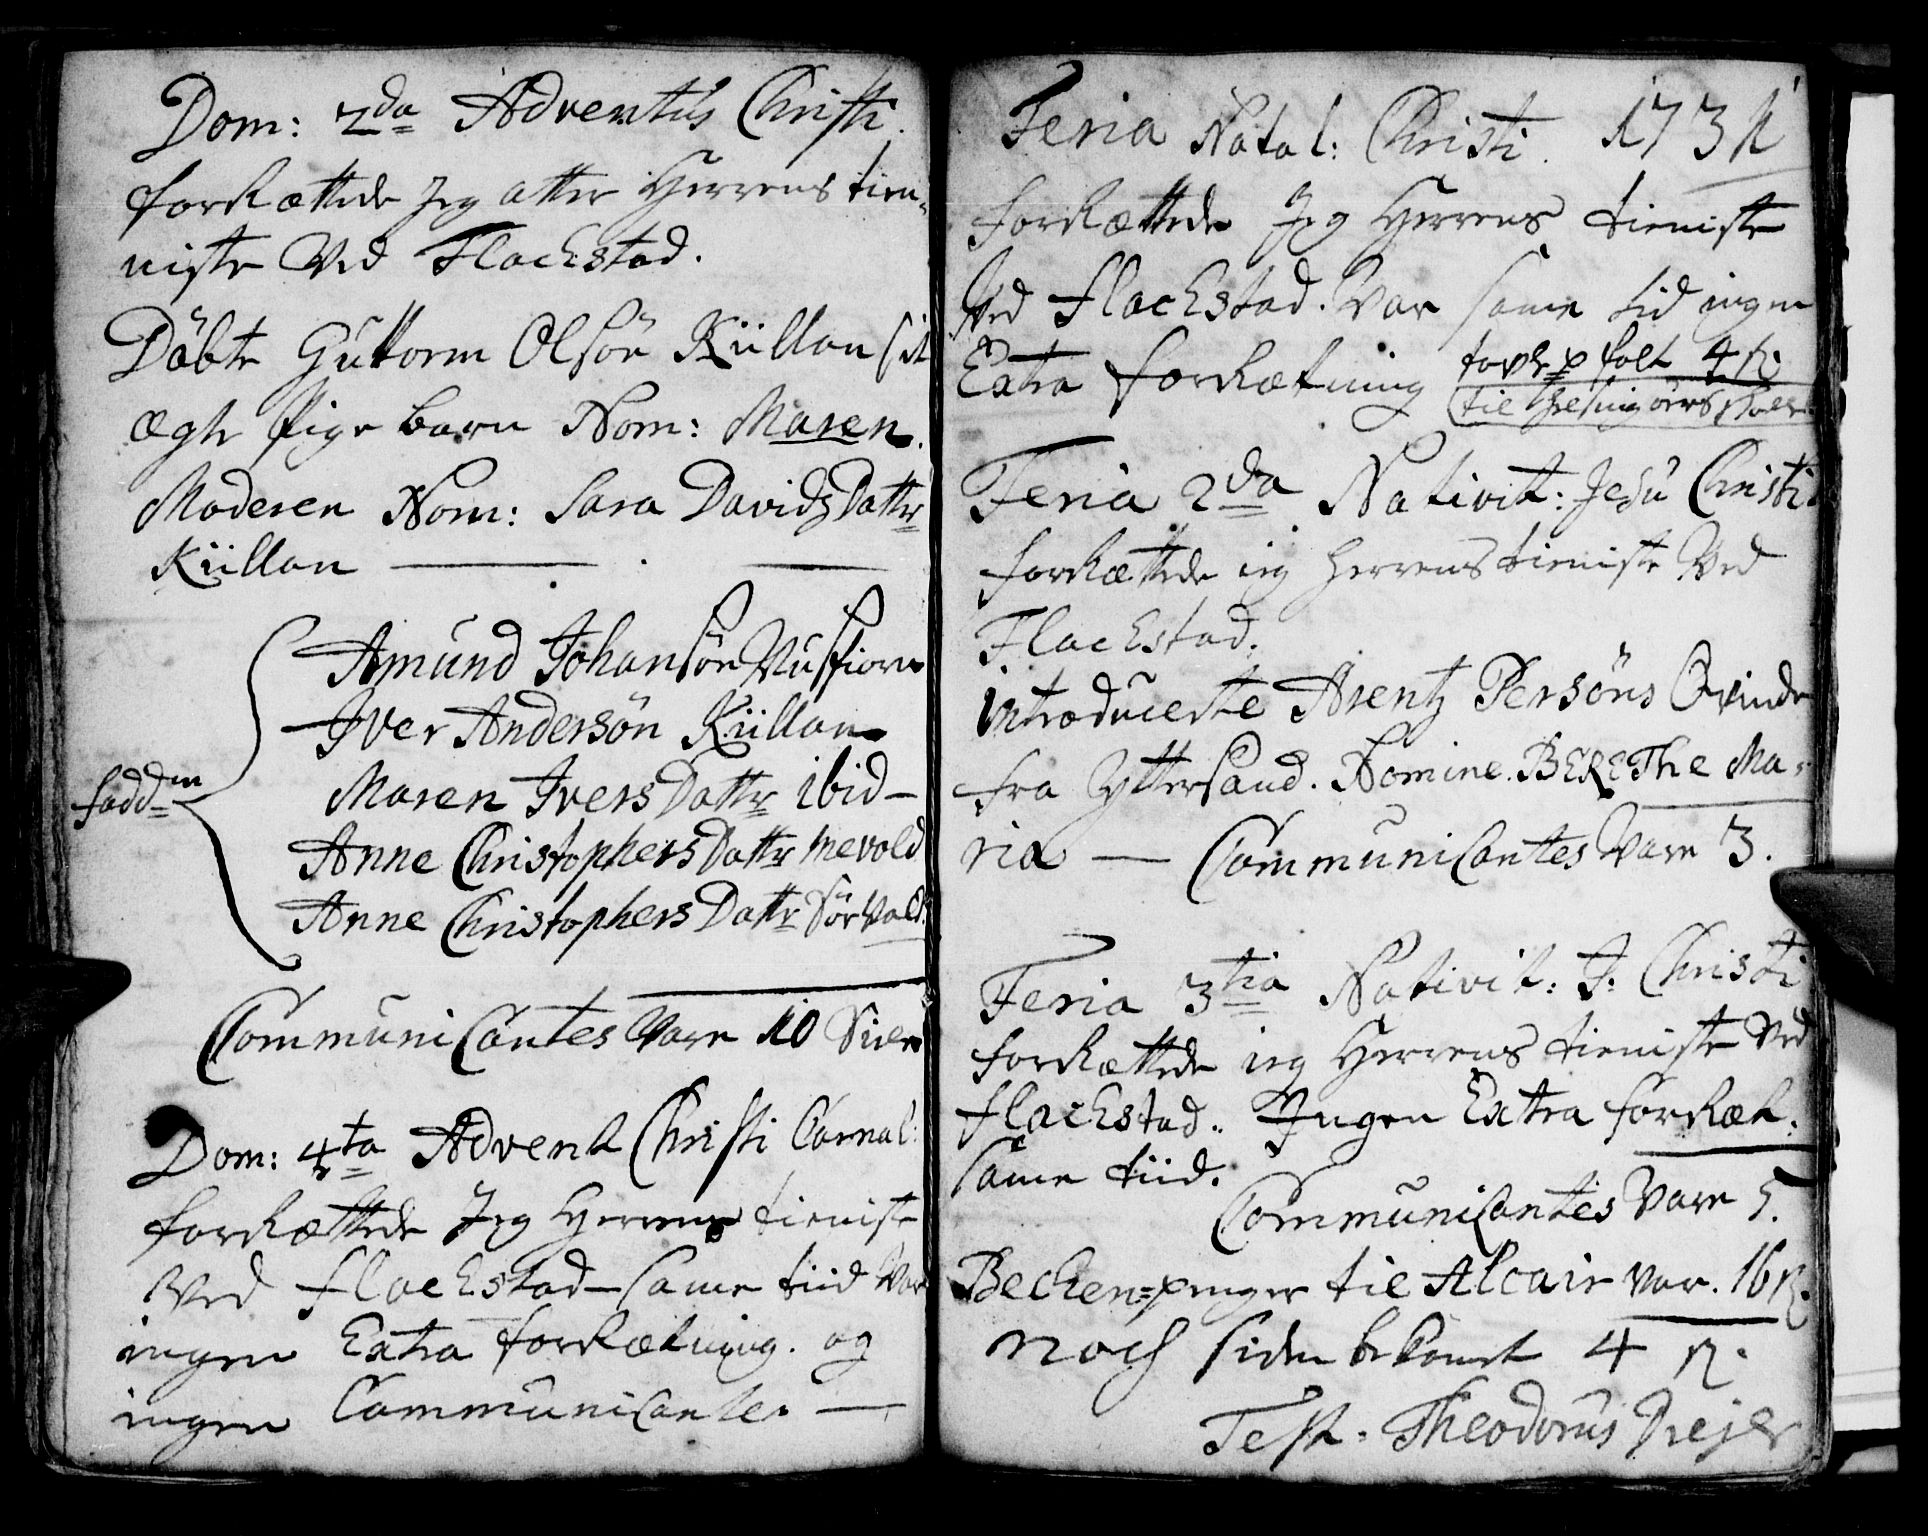 Dom: 2da Adventus Christi.
forRættede Jeg atter Herrens tien-
niste Ved Flackstad.
Döbte Guttorm Olsön Küllan sit
Ægte Pige barn Nom: Maren.
Moderen Nom: Sara Davidz Dattr
Küllan
Amund Johansön Nusfiorn
Iver Andersön Küllan
Maren Ivers Dattr ibid
fadd=rn
Anne Christophers Dattr mevold
Anne Christophers Dattr Sörvold
Communicantes vare 10
Dom: 4ta Advent Christi Carnal:
forRættede Jeg Herrens tieniste
Ved flackstad - same tiid Var
ingen Extra forRætning. og
ingen Communicante.
Feria Natal: Christi. 1731
forRættede Jeg Herrens tieniste
Ved flackstad. Var same tid ingen
Extra forRætning
falt 4
til Helsingörs
Feria 2da Nativit: Jesu Christi
forRættede ieg Herrens tieniste Ved
Flackstad.
introducerte Arentz Persöns Qvinde
fra Yttersand. Nomine. BEREThe Ma-
ria - Communicantes Vare 3.
Feria 3tia Nativit: J: Christi
forRættede ieg Herrens tieniste Ved
flackstad. Ingen Extra forRæt:
same tiid.
Communicantes Vare 5.
Becken=penger til Alcair var. 16
noch siden bekomt 4
Test. Theodorus